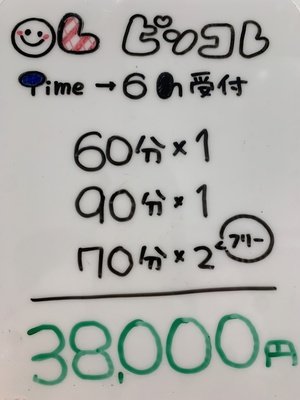 ピンコレ
Time → 6 h 受付
60分×1
90分×1
70分×2 フリー
38,000円